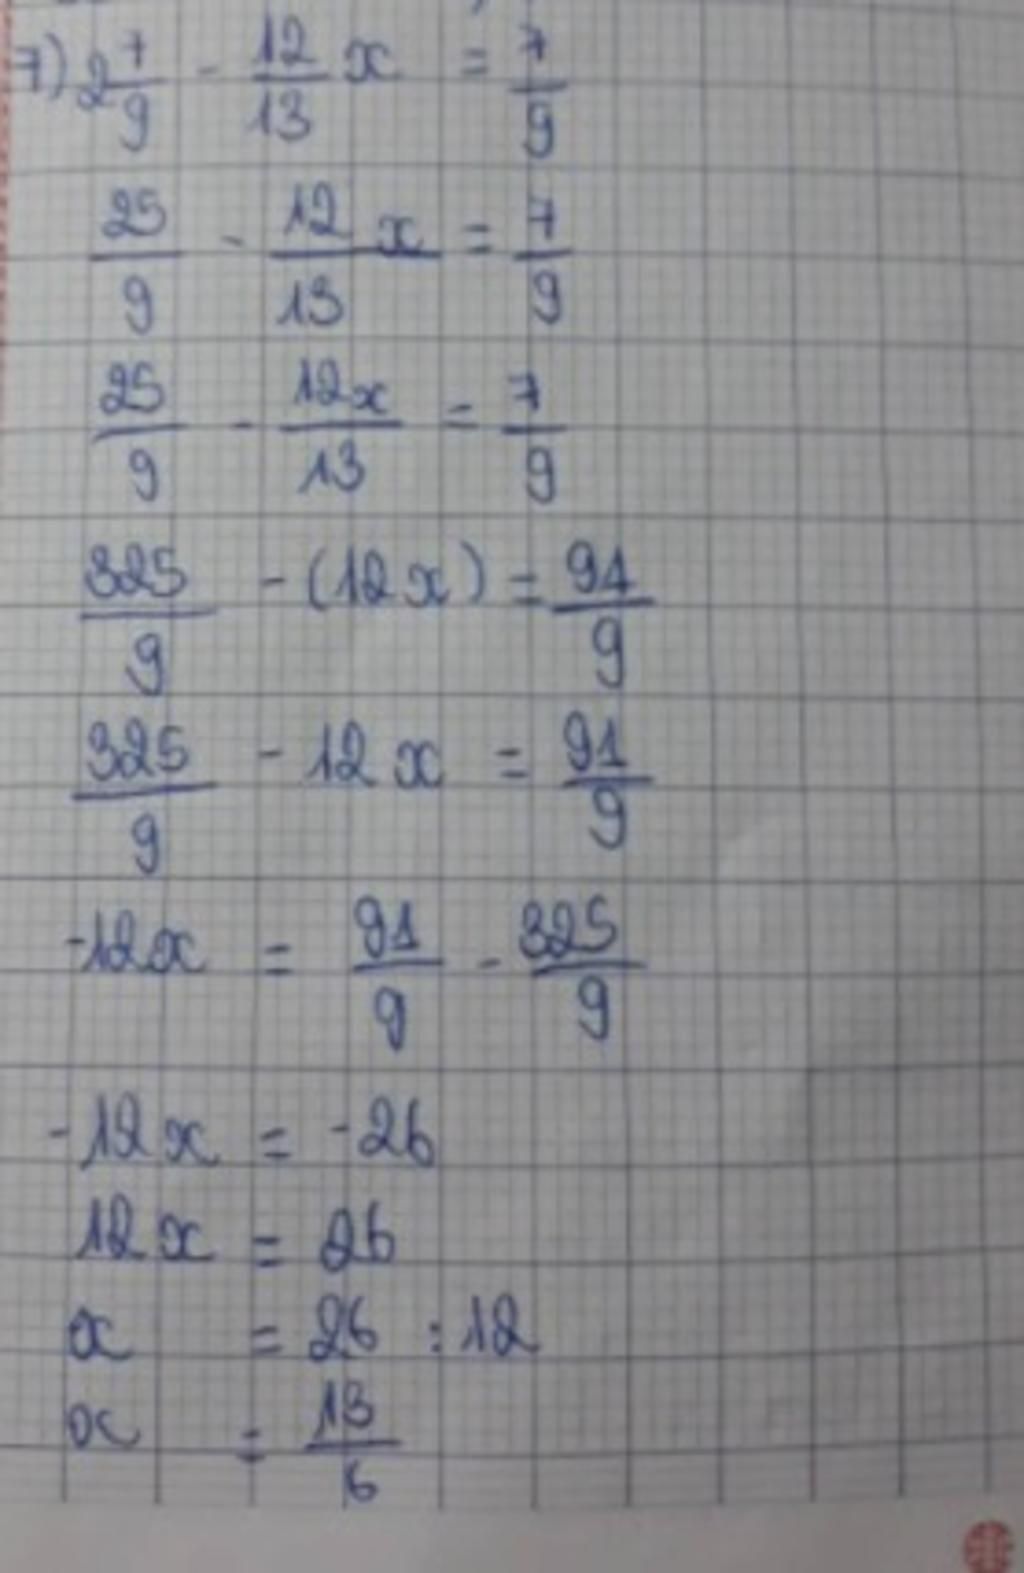 7) 2 7/9 - 12/13 x = 7/9
25/9 - 12x/13 = 7/9
25/9 - 12x/13 = 7/9
325/9 - (12x) = 91/9
325/9 - 12x = 91/9
-12x = 91/9 - 325/9
-12x = -26
12x = 26
x = 26 : 12
x = 13/6